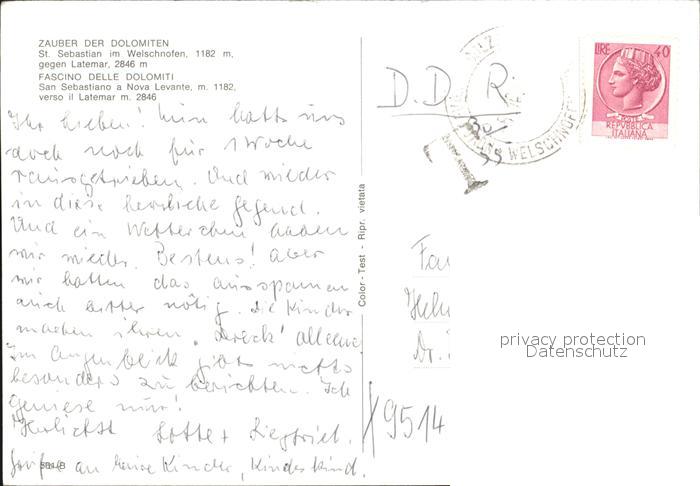 ZAUBER DER DOLOMITEN
St. Sebastian im Welschnofen, 1182 m,
gegen Latemar, 2846 m
FASCINO DELLE DOLOMITI
San Sebastiano a Nova Levante, m. 1182,
verso il Latemar m. 2846
Ihr Lieben! Nun hatts uns
doch noch für 1 Woche
rausgetrieben. Und wieder
in diese herrliche Gegend.
Und ein Wetterchen haben
wir wieder. Bestens! Aber
wir hatten das ausspannen
auch bitter nötig. Die Kinder
machen ihren "Dreck" alleine
Im Augenblick gibt nichts
besonders zu berichten. Ich
geniese nur!
Herzlichst Lotte + Siegfried.
Grüße an Kinder, Kindeskind.
Color - Test - Ripr. vietata
D.D.R.
T
WELSCHNOFEN
LIRE 40
POSTE
REPVBBLICA
ITALIANA
Fa
Helm
Dr.
9514
privacy protection
Datenschutz